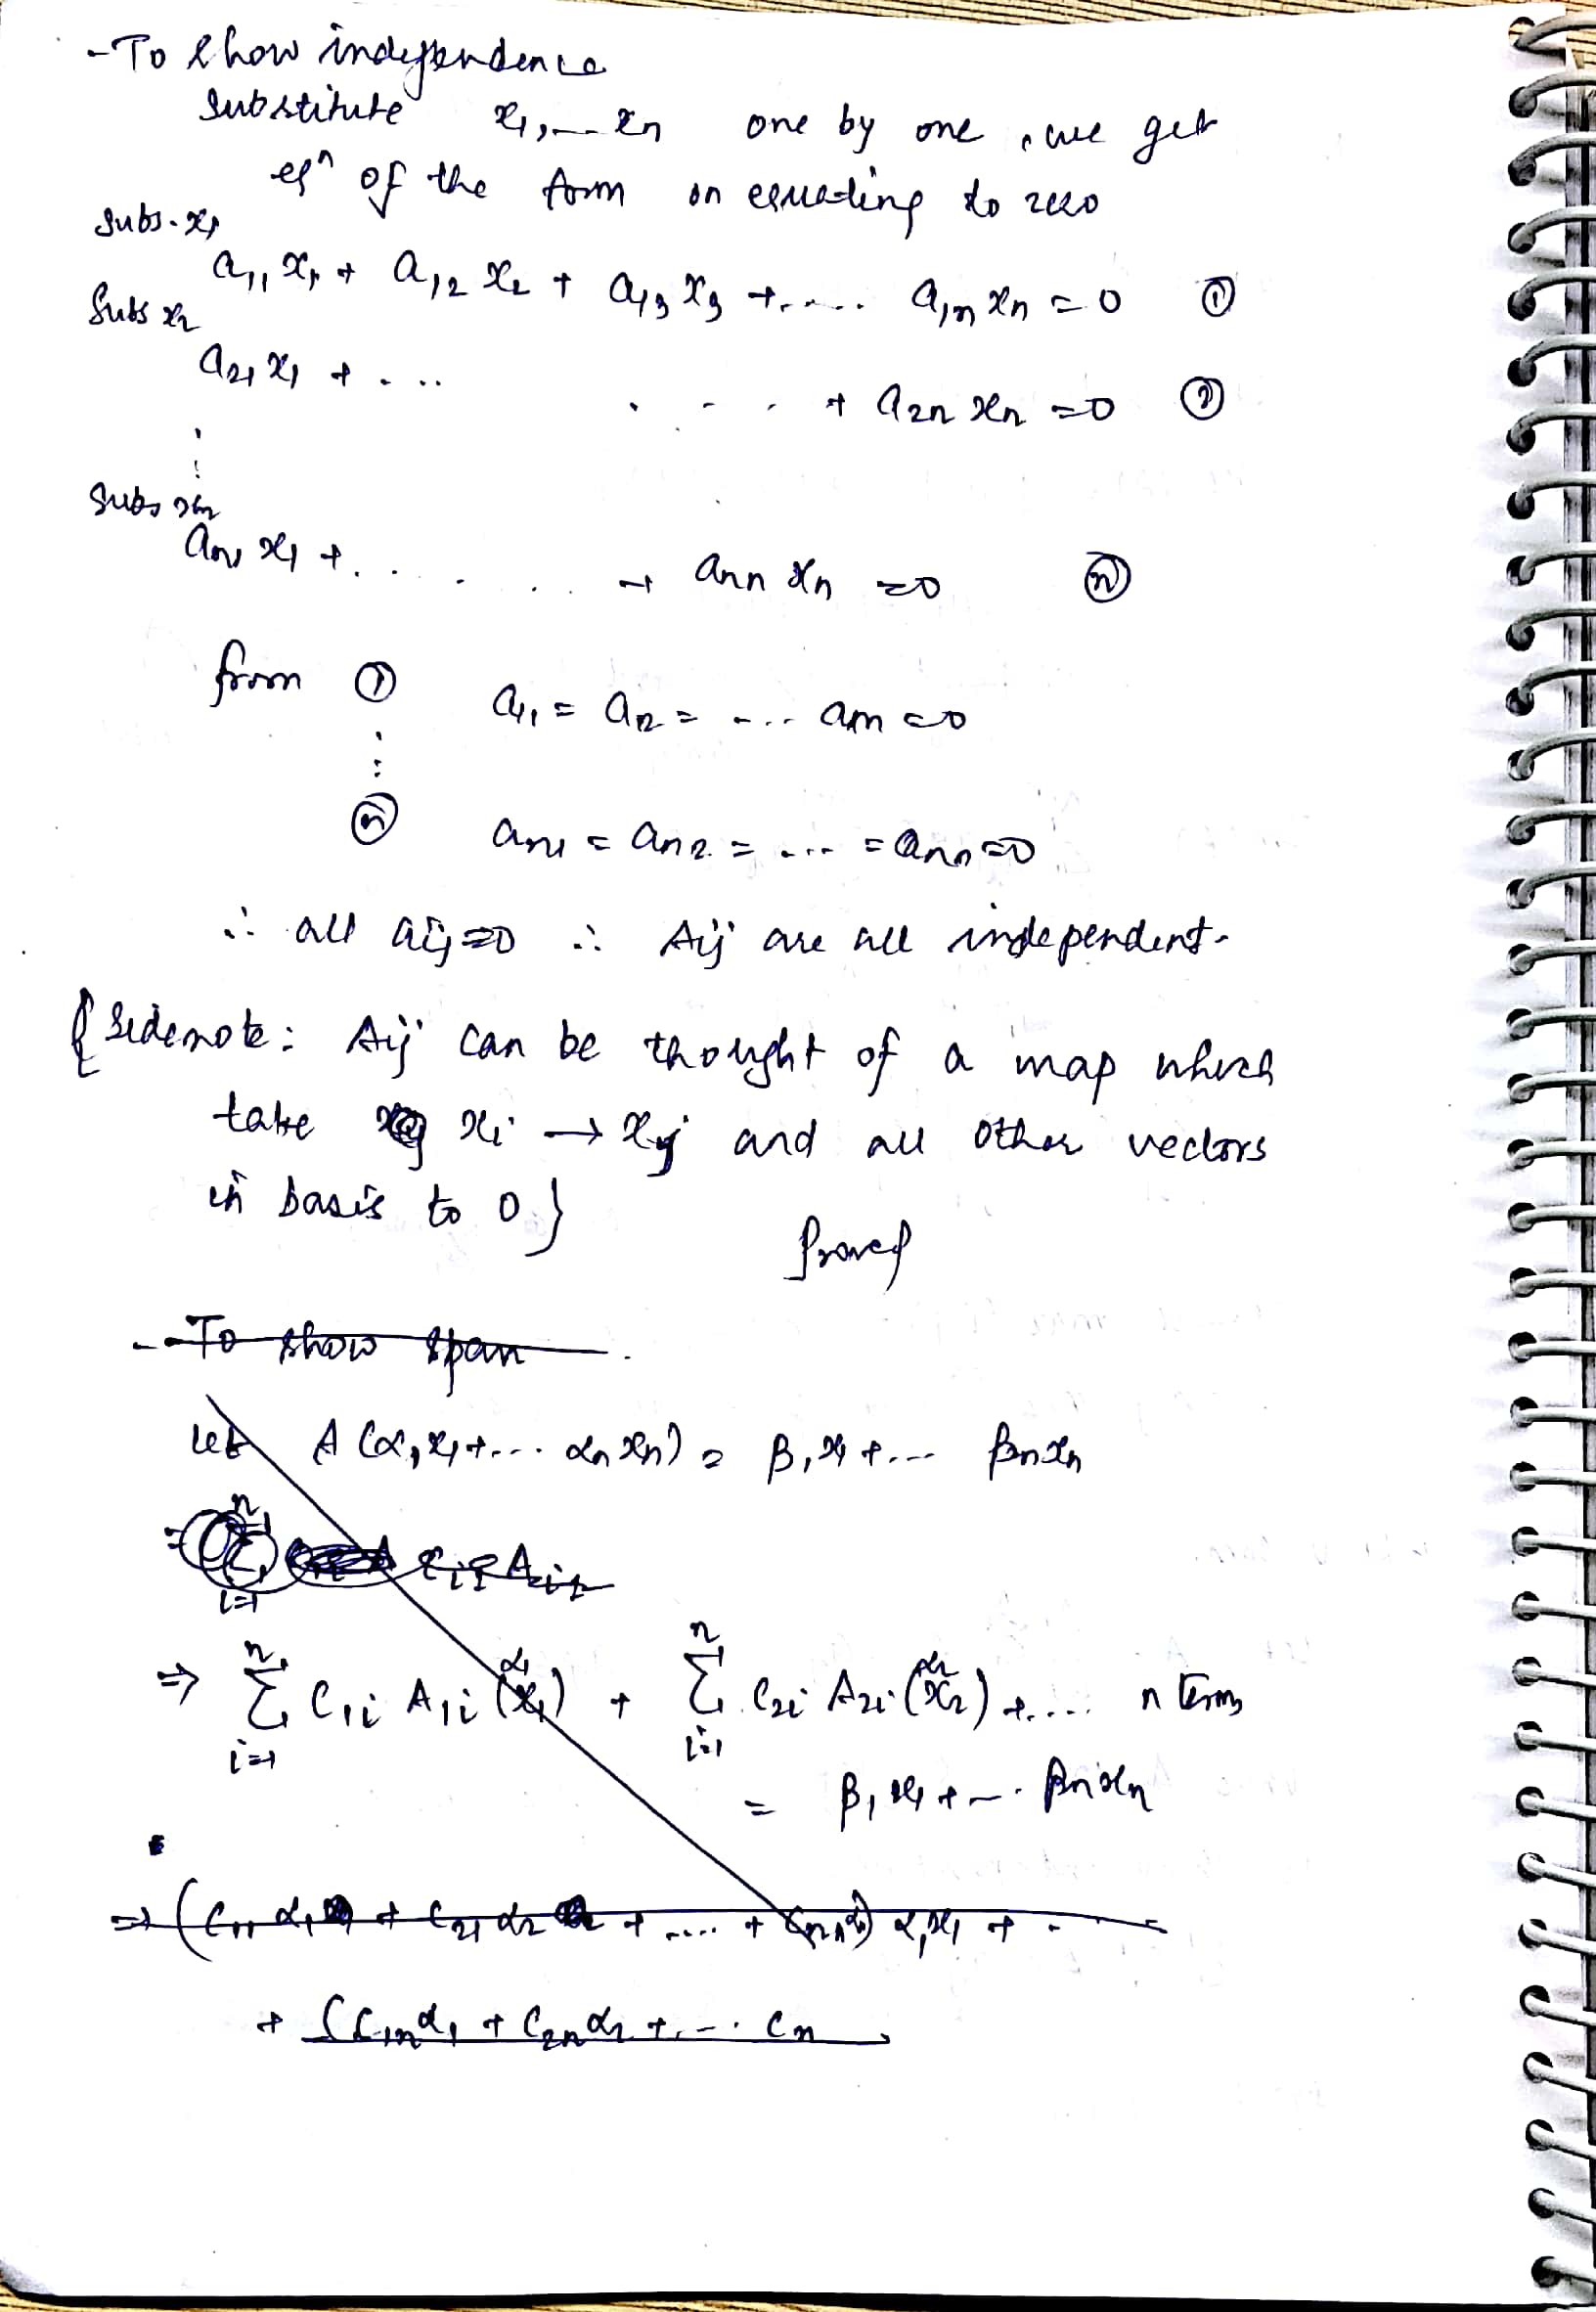 - To show independence
substitute x1, -- xn one by one, we get
eqn of the form on equating to zero
subs. x1
a11 x1 + a12 x2 + a13 x3 + .... a1n xn = 0 ①
Subs x2
a21 x1 + . .. . - - + a2n xn = 0 ②
⋮
Subs xn
an1 x1 + . . . . . + ann xn = 0 ⓝ
from ① a11 = a12 = - .. a1n = 0
⋮
ⓝ an1 = an2 = ... = ann = 0
∴ all aij = 0 ∴ Aij are all independent.
{ Sidenote: Aij can be thought of a map which
take xi → xj and all other vectors
in basis to 0 }
Proved
- - To show span .
Let A (α1 x1 + ... αn xn) = β1 x1 + ... βn xn
n Σ i=1
⇒ n Σ i=1 C1i A1i (α1 x1) + n Σ i=1 C2i A2i (α2 x2) + .... n terms
= β1 x1 + - . βn xn
⇒ (C11 α1 + C21 α2 + .... + ) α1 x1 + -
+ (C1n α1 + C2n α2 + . - . Cn